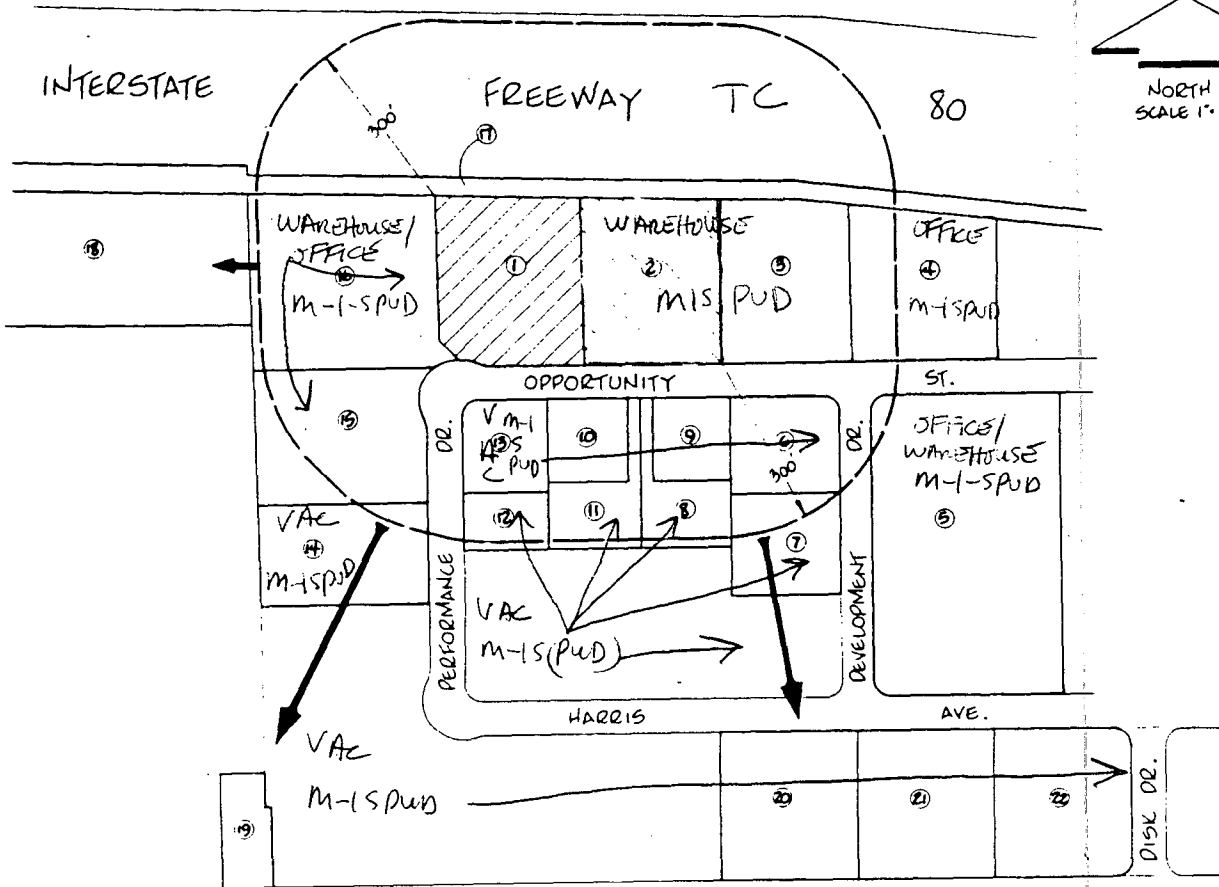 INTERSTATE FREEWAY TC 80
NORTH
SCALE 1"
300'
17
18
WAREHOUSE/
OFFICE
16
M-1-SPUD
1
WAREHOUSE
2
3
M1S PUD
OFFICE
4
M-1SPUD
OPPORTUNITY ST.
15
DR.
V M-1
13 S
A PUD
C
10
9
6
DR.
OFFICE/
WAREHOUSE
M-1-SPUD
5
300'
12
11
8
7
VAC
14
M-1SPUD
PERFORMANCE
VAC
M-1S(PUD)
DEVELOPMENT
HARRIS AVE.
VAC
M-1SPUD
19
20
21
22
DISK DR.